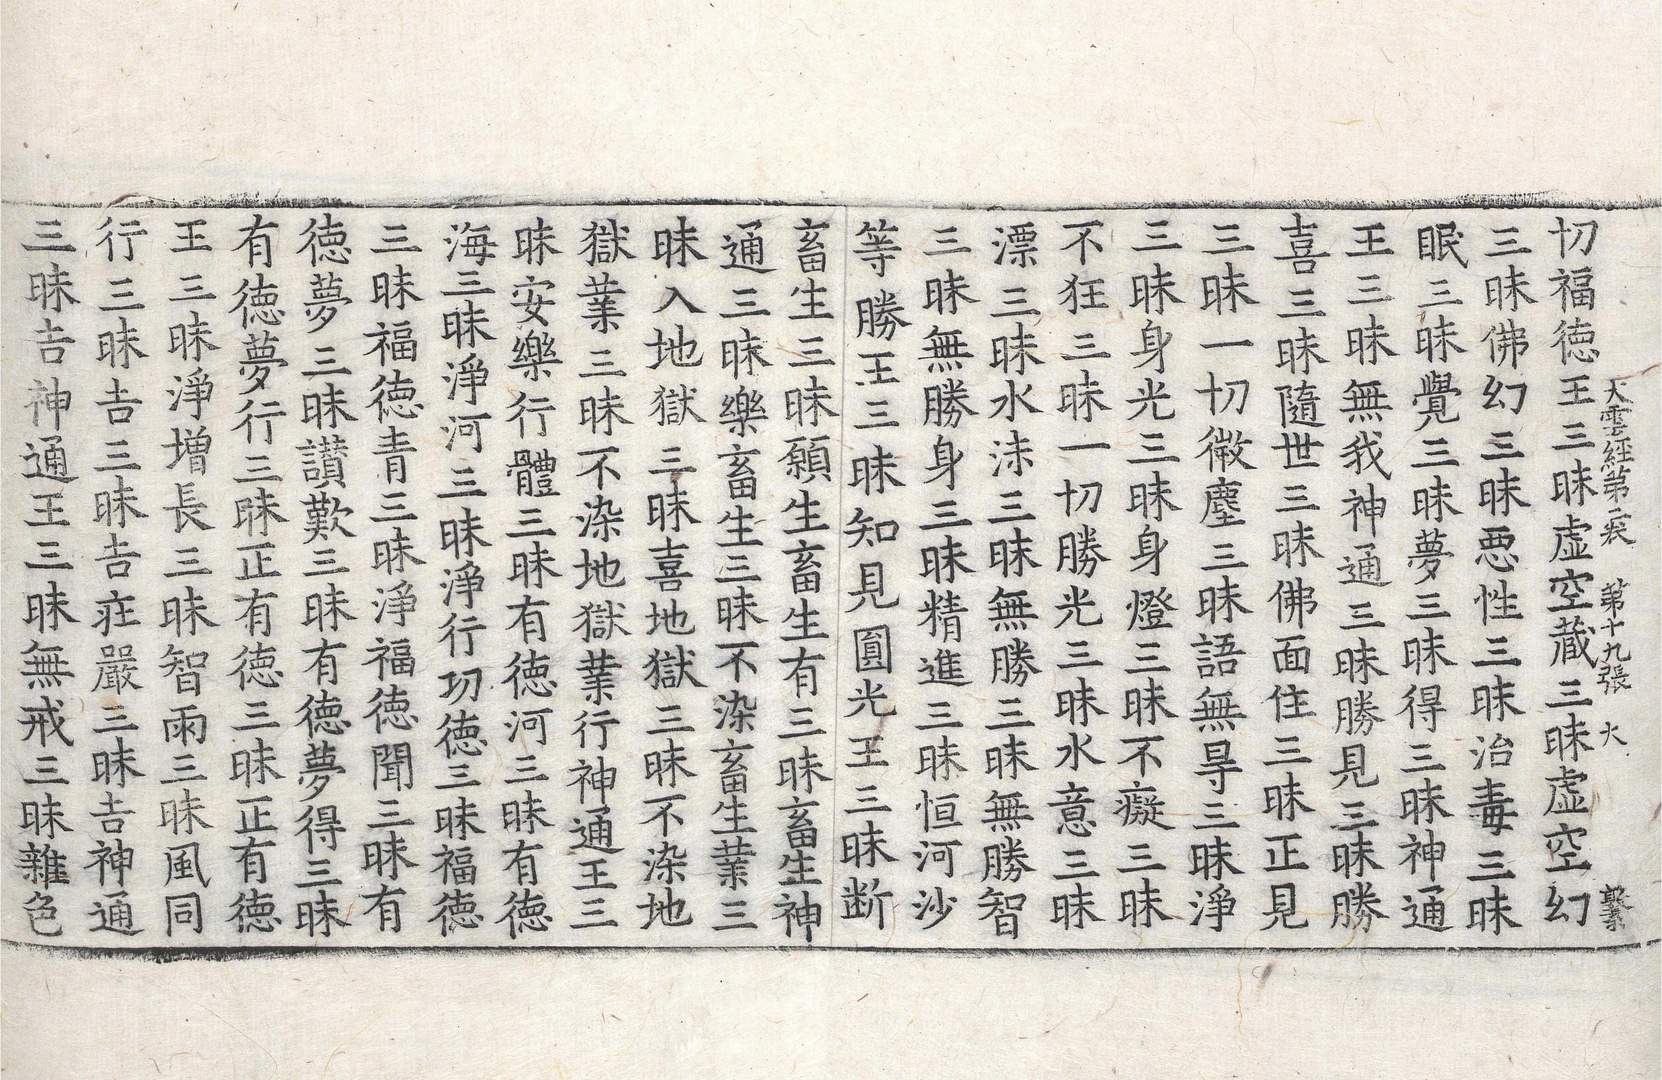 大雲經第二卷 第十九張 火
切福德王三昧虛空藏三昧虛空幻
三昧佛幻三昧惡性三昧治毒三昧
眠三昧覺三昧夢三昧得三昧神通
王三昧無我神通三昧勝見三昧勝
喜三昧隨世三昧佛面住三昧正見
三昧一切微塵三昧語無㝵三昧淨
三昧身光三昧身燈三昧不癡三昧
不狂三昧一切勝光三昧水意三昧
漂三昧水沫三昧無勝三昧無勝智
三昧無勝身三昧精進三昧恒河沙
等勝王三昧知見圓光王三昧断
畜生三昧願生畜生有三昧畜生神
通三昧樂畜生三昧不染畜生業三
昧入地獄三昧喜地獄三昧不染地
獄業三昧不染地獄業行神通王三
昧安樂行體三昧有德河三昧有德
海三昧淨河三昧淨行功德三昧福德
三昧福德青三昧淨福德聞三昧有
德夢三昧讃歎三昧有德夢得三昧
有德夢行三昧正有德三昧正有德
王三昧淨增長三昧智雨三昧風同
行三昧吉三昧吉莊嚴三昧吉神通
三昧吉神通王三昧無戒三昧雜色